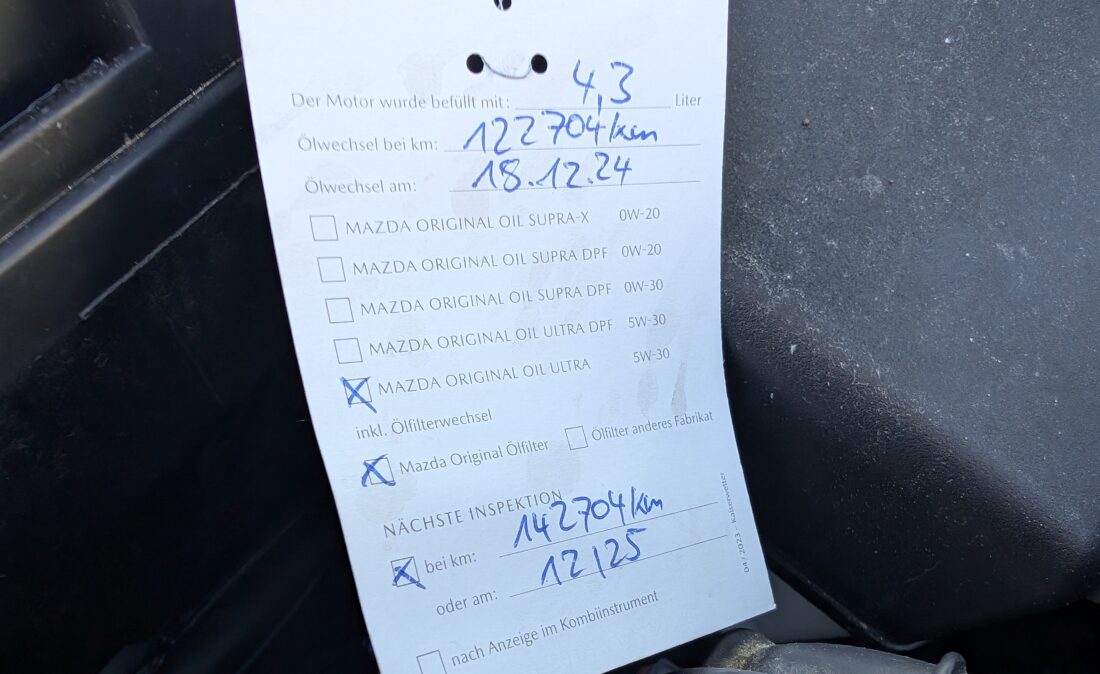 Der Motor wurde befüllt mit: 4,3 Liter
Ölwechsel bei km: 122704/km
Ölwechsel am: 18.12.24
MAZDA ORIGINAL OIL SUPRA-X 0W-20
MAZDA ORIGINAL OIL SUPRA DPF 0W-20
MAZDA ORIGINAL OIL SUPRA DPF 0W-30
MAZDA ORIGINAL OIL ULTRA DPF 5W-30
MAZDA ORIGINAL OIL ULTRA 5W-30
inkl. Ölfilterwechsel
Mazda Original Ölfilter Ölfilter anderes Fabrikat
NÄCHSTE INSPEKTION
bei km: 142704/km
oder am: 12/25
nach Anzeige im Kombiinstrument
04 / 2023 – Kaiserwetter